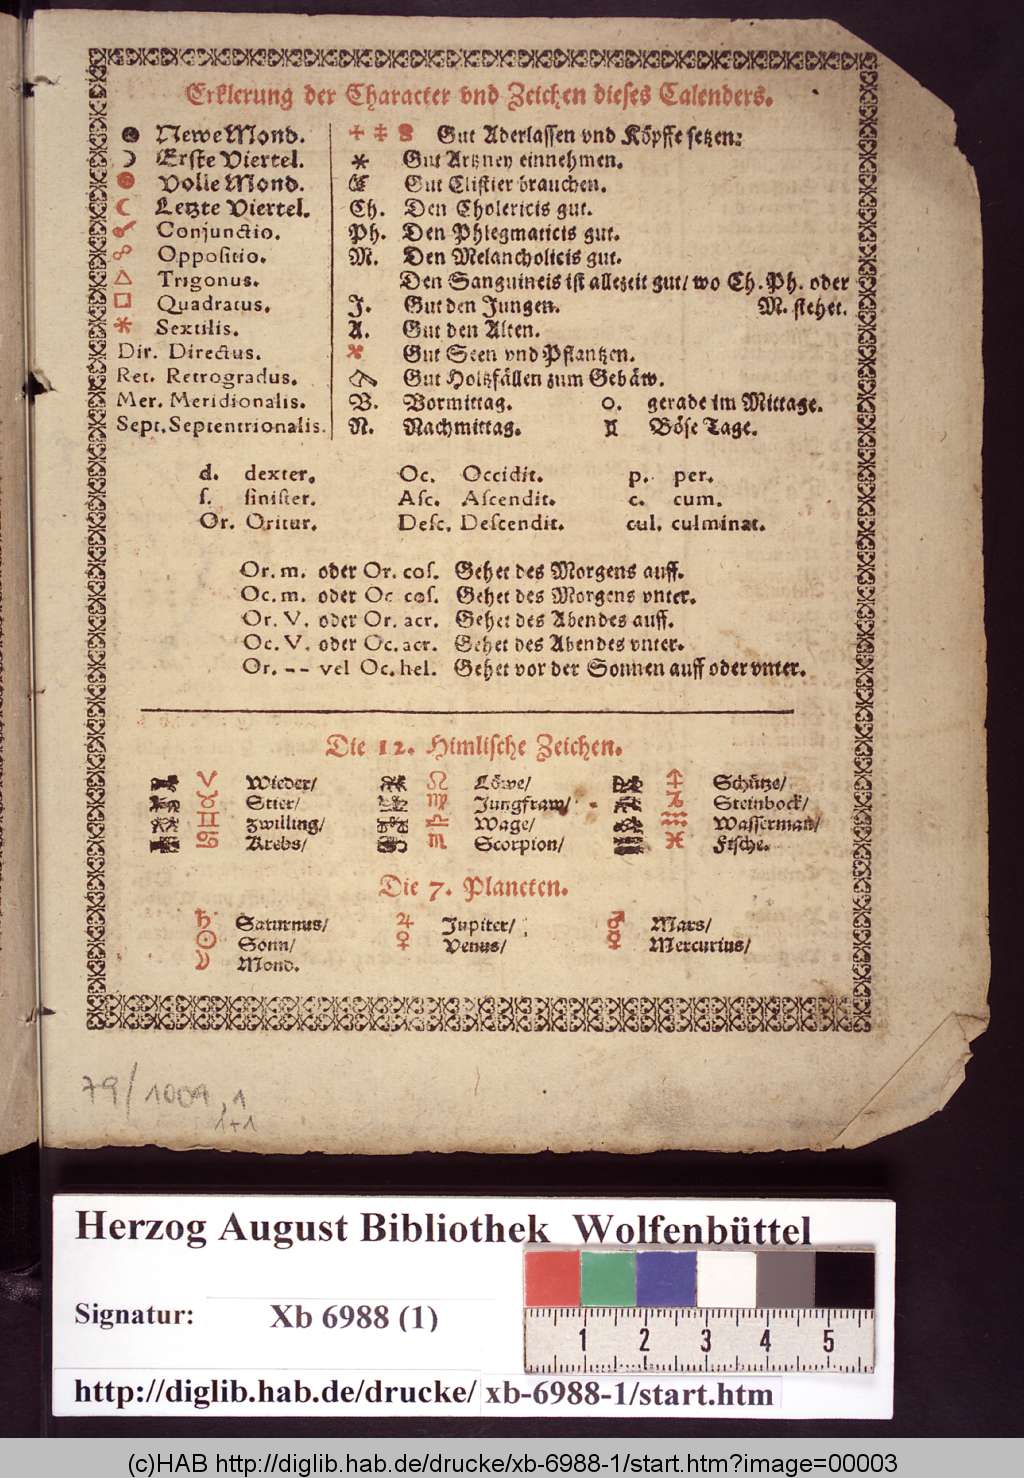 Erklerung der Character vnd Zeichen dieses Calenders.
Newe Mond.
Erste Viertel.
Volle Mond.
☾ Letzte Viertel.
Conjunctio.
☍ Oppositio.
△ Trigonus.
□ Quadratus.
Sextilis.
Dir. Directus.
Ret. Retrogradus.
Mer. Meridionalis.
Sept. Septentrionalis.
Gut Aderlassen vnd Köpffe setzen:
Gut Artzney einnehmen.
Gut Clistier brauchen.
Ch. Den Cholericis gut.
Ph. Den Phlegmaticis gut.
M. Den Melancholicis gut.
Den Sanguineis ist allezeit gut/ wo Ch. Ph. oder
M. stehet.
J. Gut den Jungen.
A. Gut den Alten.
Gut Seen vnd Pflantzen.
Gut Holtzfällen zum Gebäw.
V. Vormittag. o. gerade im Mittage.
N. Nachmittag. Böse Tage.
d. dexter. Oc. Occidit. p. per.
ſ. ſiniſter. Aſc. Aſcendit. c. cum.
Or. Oritur. Deſc. Deſcendit. cul. culminat.
Or. m. oder Or. coſ. Gehet des Morgens auff.
Oc. m. oder Oc coſ. Gehet des Morgens vnter.
Or. V. oder Or. acr. Gehet des Abendes auff.
Oc. V. oder Oc. acr. Gehet des Abendes vnter.
Or. -- vel Oc. hel. Gehet vor der Sonnen auff oder vnter.
Die 12. Himlische Zeichen.
♈ Wieder/ ♌ Löwe/ ♐ Schütze/
♉ Stier/ ♍ Jungfraw/ ♑ Steinbock/
♊ Zwilling/ ♎ Wage/ ♒ Wasserman/
♋ Krebs/ ♏ Scorpion/ ♓ Fische.
Die 7. Planeten.
♄ Saturnus/ ♃ Jupiter/ ♂ Mars/
☉ Sonn/ ♀ Venus/ ☿ Mercurius/
☽ Mond.
79/1009,1
1+1
Herzog August Bibliothek Wolfenbüttel
Signatur: Xb 6988 (1)
1 2 3 4 5
http://diglib.hab.de/drucke/ xb-6988-1/start.htm
(c)HAB http://diglib.hab.de/drucke/xb-6988-1/start.htm?image=00003